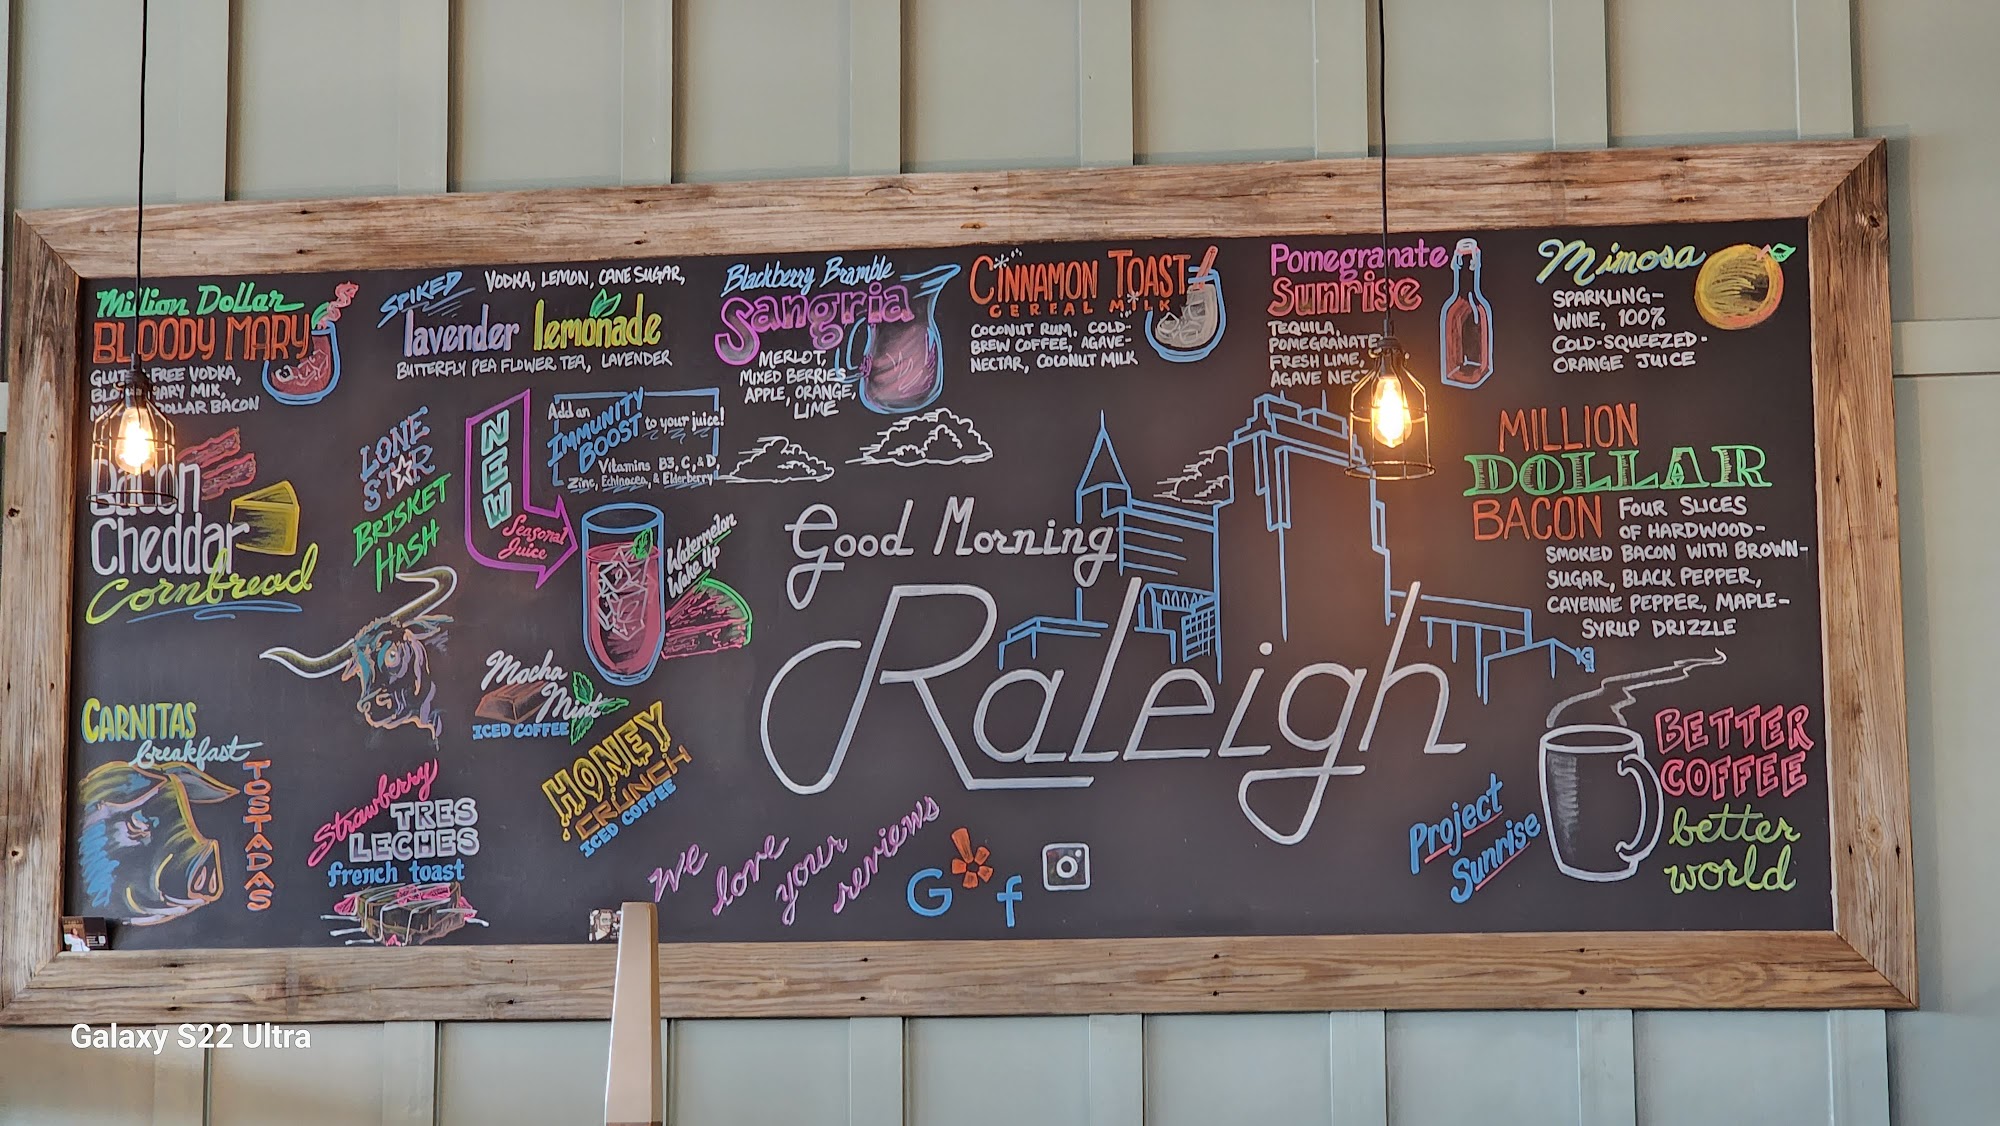 Million Dollar
BLOODY MARY
FREE VODKA,
MIX,
DOLLAR BACON
SPIKED
VODKA, LEMON, CANE SUGAR,
lavender lemonade
BUTTERFLY PEA FLOWER TEA, LAVENDER
Blackberry Bramble
Sangria
MERLOT,
MIXED BERRIES
APPLE, ORANGE,
LIME
CINNAMON TOAST
CEREAL MILK
COCONUT RUM, COLD-
BREW COFFEE, AGAVE-
NECTAR, COCONUT MILK
Pomegranate
Sunrise
TEQUILA,
POMEGRANATE
FRESH LIME,
AGAVE
Mimosa
SPARKLING-
WINE, 100%
COLD-SQUEEZED-
ORANGE JUICE
Bacon
Cheddar
Cornbread
LONE
STAR
BRISKET
HASH
NEW
Seasonal
Juice
Add an
IMMUNITY
BOOST
to your juice!
Vitamins B3, C, & D,
Zinc, Echinacea, & Elderberry
Watermelon
Wake Up
Good Morning
Raleigh
MILLION
DOLLAR
BACON FOUR SLICES
OF HARDWOOD-
SMOKED BACON WITH BROWN-
SUGAR, BLACK PEPPER,
CAYENNE PEPPER, MAPLE-
SYRUP DRIZZLE
CARNITAS
breakfast
TOSTADAS
Mocha
Mint
ICED COFFEE
HONEY
CRUNCH
ICED COFFEE
Strawberry
TRES
LECHES
french toast
we love your reviews
G f
Project
Sunrise
BETTER
COFFEE
better
world
Galaxy S22 Ultra